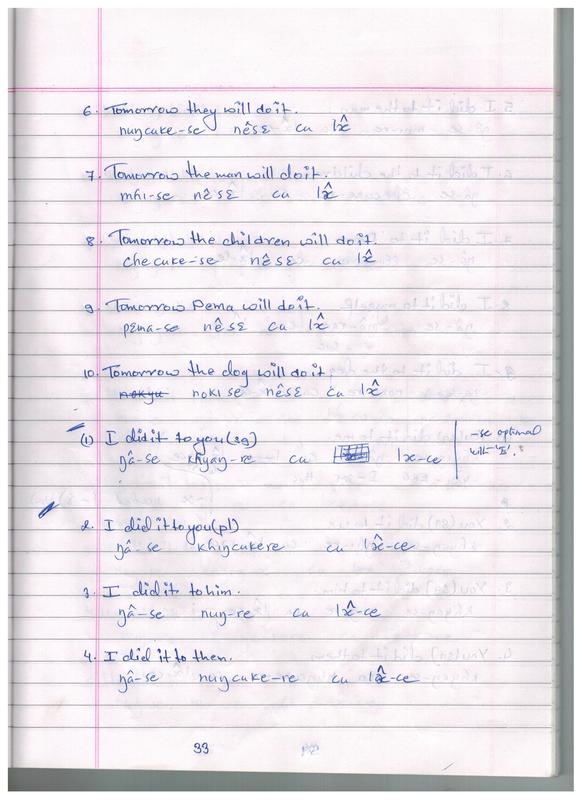 6. Tomorrow they will do it.
nuŋcuke-se nêsɛ cu lx̂
7. Tomorrow the man will do it.
mhi-se nêsɛ cu lx̂
8. Tomorrow the children will do it.
checuke-se nêsɛ cu lx̂
9. Tomorrow Pema will do it.
pɛma-se nêsɛ cu lx̂
10. Tomorrow the dog will do it.
noki se nêsɛ cu lx̂
(1) I did it to you (sg)
ŋâ-se khyaŋ-re cu lx-ce
-se optimal
with 'I'.
2. I did it to you (pl)
ŋâ-se khiŋcukere cu lx̂-ce
3. I did it to him.
ŋâ-se nuŋ-re cu lx̂-ce
4. I did it to then.
ŋâ-se nuŋcuke-re cu lx̂-ce
33